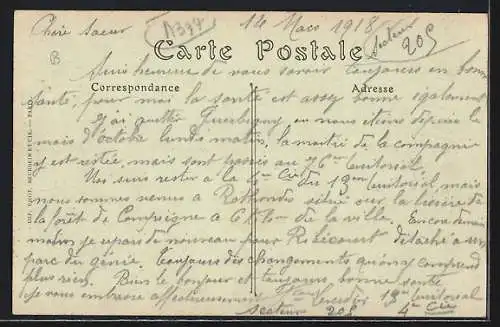 Chère Soeur
14 Mars 1918
Secteur 205
Carte Postale
Correspondance
Adresse
Suis heureuse de vous savoir toujours en bonne
santé, pour moi la santé est assez bonne également
J'ai quitté Guerbigny ou nous étions depuis le
mois d'octobre lundi matin, la moitié de la compagnie
y est restée, mais sont passés au 76me territorial
Moi suis rester a la 4e Cie du 13me territorial, mais
nous sommes venus a Rethondes situé sur la lisière de
la forêt de Compiegne a 6 Klm de la ville. Encore demain
matin je repars de nouveau pour Ribécourt détaché a un
parc du génie. Toujours des changements quoi, n'y comprend
plus rien. Bien le bonjour et toujours bonne santé
Je vous embrasse affectueusement
13me territorial
4e Cie
Secteur 205